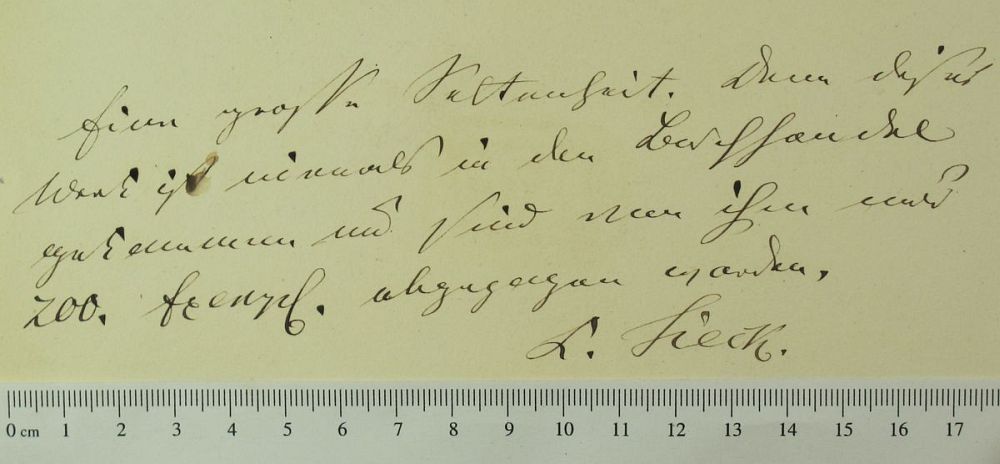 Eine große Seltenheit. Denn dieses
Werk ist niemals in den Buchhandel
gekommen und sind von ihm nur
200. Exempl. abgezogen worden.
L. Tieck.
0 cm 1 2 3 4 5 6 7 8 9 10 11 12 13 14 15 16 17